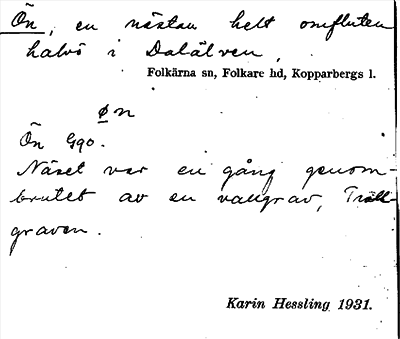 Ön, en nästan helt omfluten
halvö i Dalälven,
Folkärna sn, Folkare hd, Kopparbergs l.
ø n
Ön Gqo.
Näset var en gång genom-
brutet av en vallgrav, Träll-
graven.
Karin Hessling 1931.